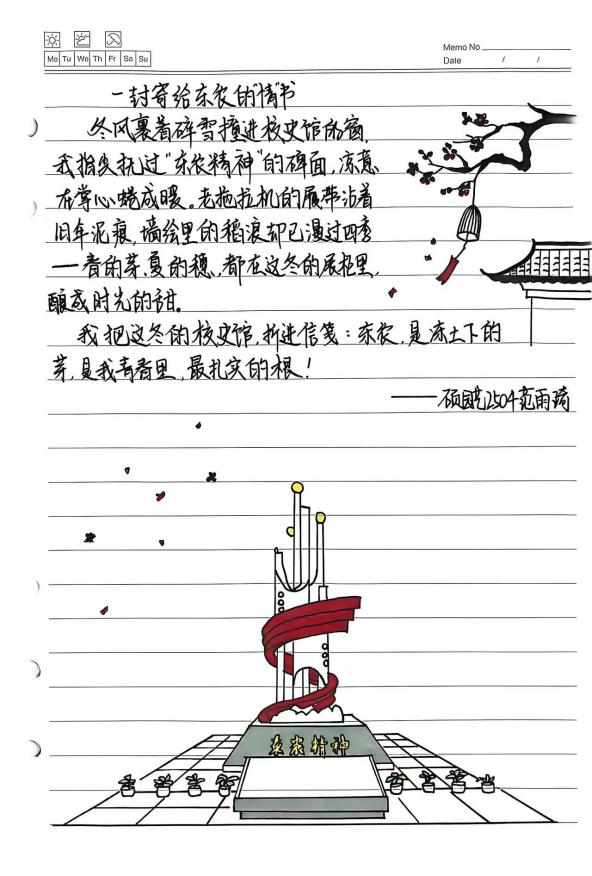 Mo Tu We Th Fr Sa Su
Memo No
Date / /
一封寄给东农的"情"书
冬风裹着碎雪撞进校史馆的窗,
我指尖抚过"东农精神"的碑面,凉意
在掌心蜷成暖。老拖拉机的履带沾着
旧年泥痕,墙绘里的稻浪却已漫过四季
——春的芽、夏的穗,都在这冬的展柜里,
酿成时光的甜。
我把这冬的校史馆,折进信笺:东农,是冻土下的
芽,是我青春里,最扎实的根!
——硕园艺2504范雨琦
东农精神